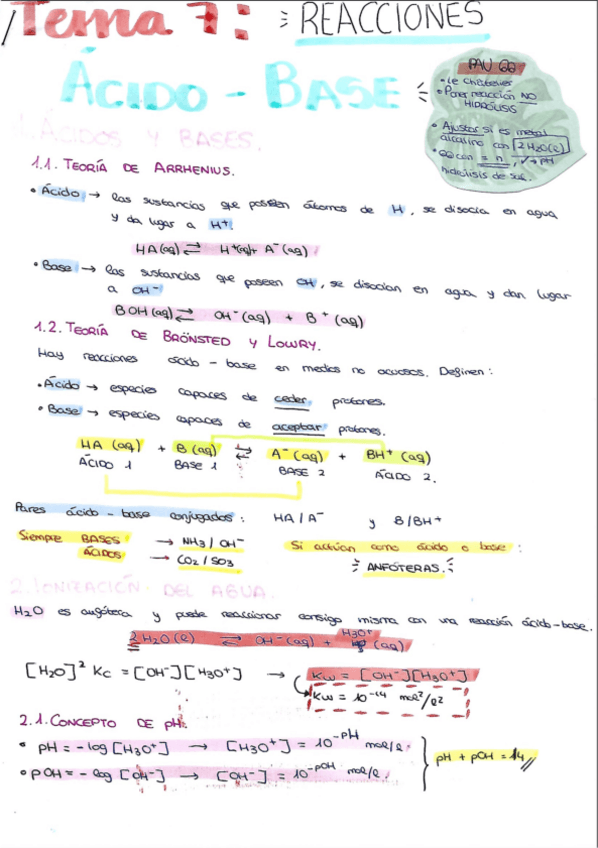 Tema 7: REACCIONES
ÁCIDO - BASE
PAU
• Le Châtelier
• Poner reacción NO
HIDRÓLISIS
• Ajustar si es metal
alcalino con 2H₂O(l)
con = n, → pH
hidrólisis de sal.
1. ÁCIDOS Y BASES.
1.1. TEORÍA DE ARRHENIUS.
• Ácido → las sustancias que poseen átomos de H, se disocia en agua
y da lugar a H⁺.
HA(aq) ⇌ H⁺(aq) + A⁻(aq)
• Base → las sustancias que poseen OH, se disocian en agua y dan lugar
a OH⁻
BOH(aq) ⇌ OH⁻(aq) + B⁺(aq)
1.2. TEORÍA DE BRÖNSTED Y LOWRY.
Hay reacciones ácido - base en medios no acuosos. Definen:
• Ácido → especies capaces de ceder protones.
• Base → especies capaces de aceptar protones.
HA (aq) + B (aq) ⇌ A⁻ (aq) + BH⁺ (aq)
ÁCIDO 1 BASE 1 BASE 2 ÁCIDO 2.
Pares ácido - base conjugados: HA/A⁻ y B/BH⁺
Siempre BASES → NH3/OH⁻ Si actúan como ácido o base:
ÁCIDOS → CO2/SO3 ANFÓTERAS.
2. IONIZACIÓN DEL AGUA.
H₂O es anfótera y puede reaccionar consigo misma con una reacción ácido-base.
2H₂O(l) ⇌ OH⁻(aq) + H3O⁺ (aq)
[H₂O]² Kc = [OH⁻][H3O⁺] → Kw = [OH⁻][H3O⁺]
Kw = 10⁻¹⁴ mol²/l²
2.1. CONCEPTO DE pH.
• pH = -log [H3O⁺] → [H3O⁺] = 10⁻ᵖᴴ mol/l.
• pOH = -log [OH⁻] → [OH⁻] = 10⁻ᵖᴼᴴ mol/l.
pH + pOH = 14